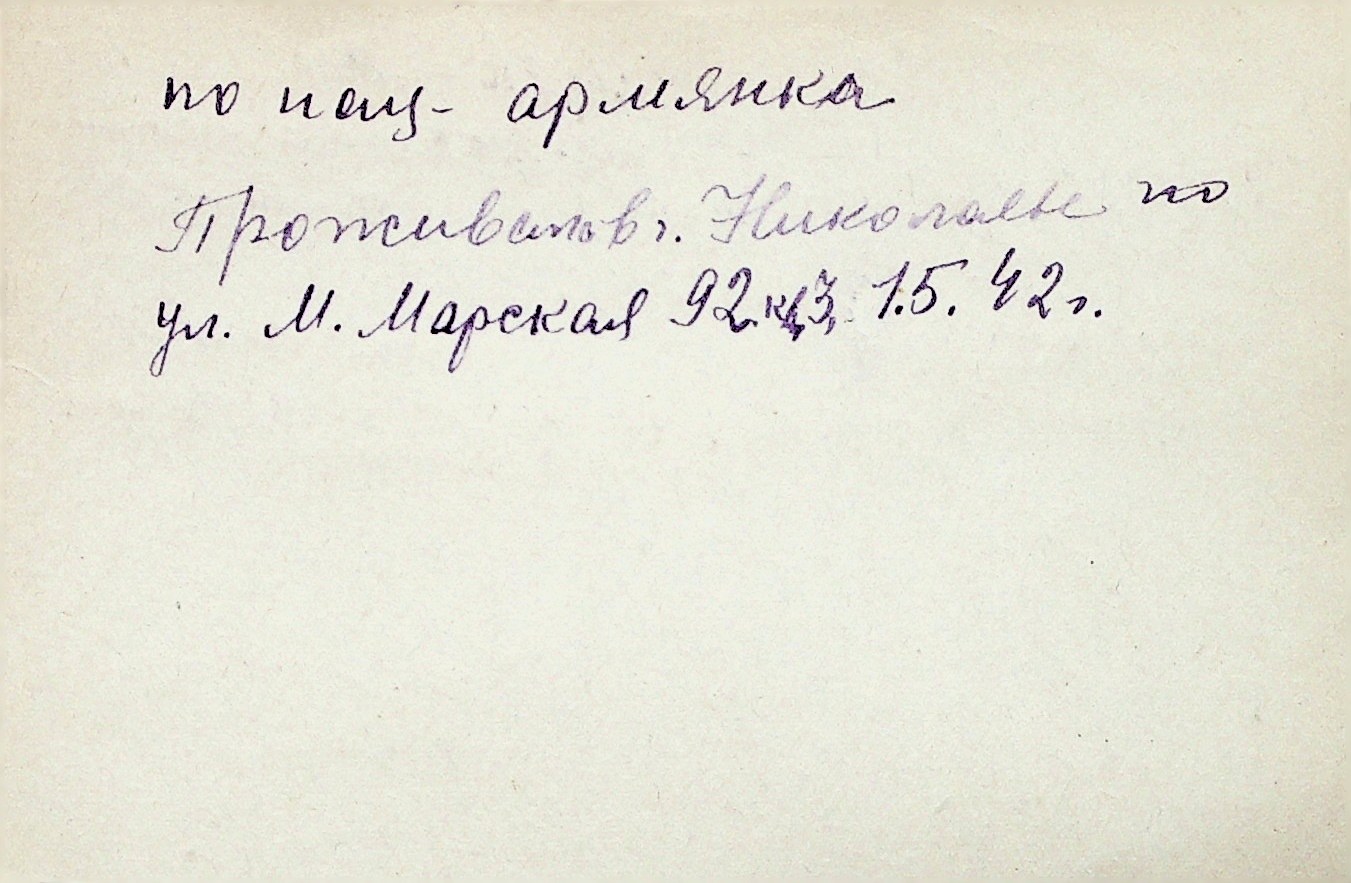 по нац- армянка
Проживала в г. Николаеве по
ул. М. Марская 92 кв 3, 1.5. 42 г.